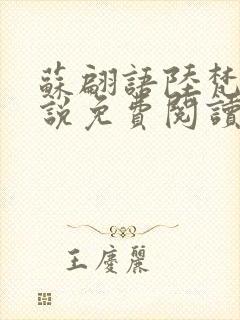 蘇翩語陸梵
說免費閱讀
王慶麗